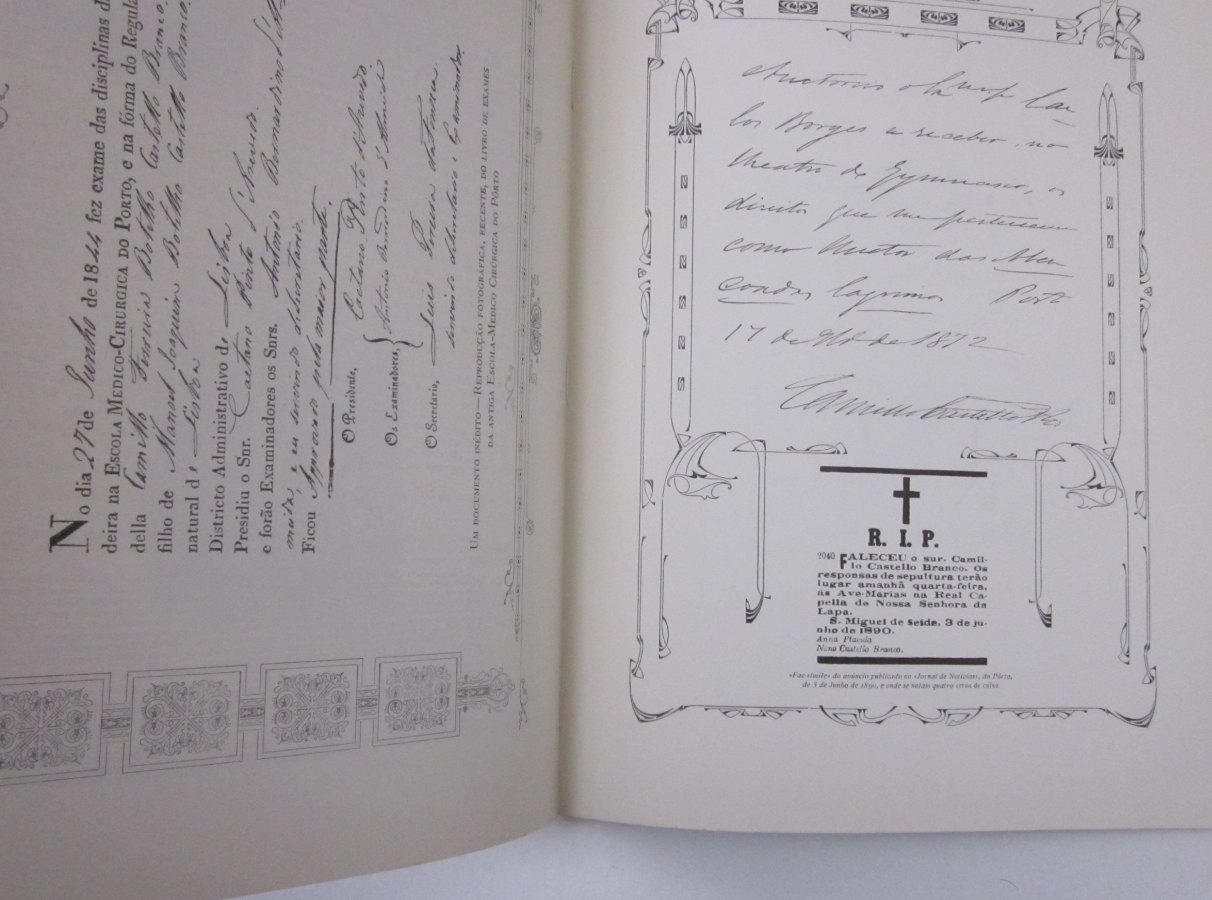 No dia 27 de Junho de 1844 fez exame das disciplinas da
deira na ESCOLA MEDICO-CIRURGICA DO PORTO, e na fórma do Regula
della Camillo Ferreira Botelho Castello Branco,
filho de Manoel Joaquim Botelho Castello Branco,
natural d e Lisboa
Districto Administrativo de Lisboa
Presidiu o Snr. Caetano Pinto d'Azevedo.
e forão Examinadores os Snrs. Antonio Bernardino
e eu servindo de Secretario.
Ficou Approvado pela maior parte.
O Presidente, Caetano Pinto d'Azevedo.
Os Examinadores, Antonio Bernardino d'Almeida
O Secretario, Luis Pereira da Fonseca.
servindo de Secretario e Examinador.
UM DOCUMENTO INÉDITO — REPRODUÇÃO FOTOGRÁFICA, RECENTE, DO LIVRO DE EXAMES
DA ANTIGA ESCOLA-MEDICO CIRÚRGICA DO PÔRTO
Auctoriso o Ill.mo Snr. Car-
los Borges a receber, no
theatro do Gymnasio, os
direitos que me pertencem
como auctor das Aben-
çoadas lagrimas Porto
17 de de 1872
Camillo Castello Br.co
R. I. P.
2040 FALECEU o snr. Camil-
lo Castello Branco. Os
responsas de sepultura terão
lugar amanhã quarta-feira,
ás Ave-Marias na Real Ca-
pella de Nossa Senhora da
Lapa.
S. Miguel de Seide, 3 de ju-
nho de 1890.
Anna Placida
Nuno Castello Branco.
«Fac-simile» do anúncio publicado no «Jornal de Noticias», do Pôrto,
de 3 de Junho de 1890, e onde se notam quatro erros de caixa